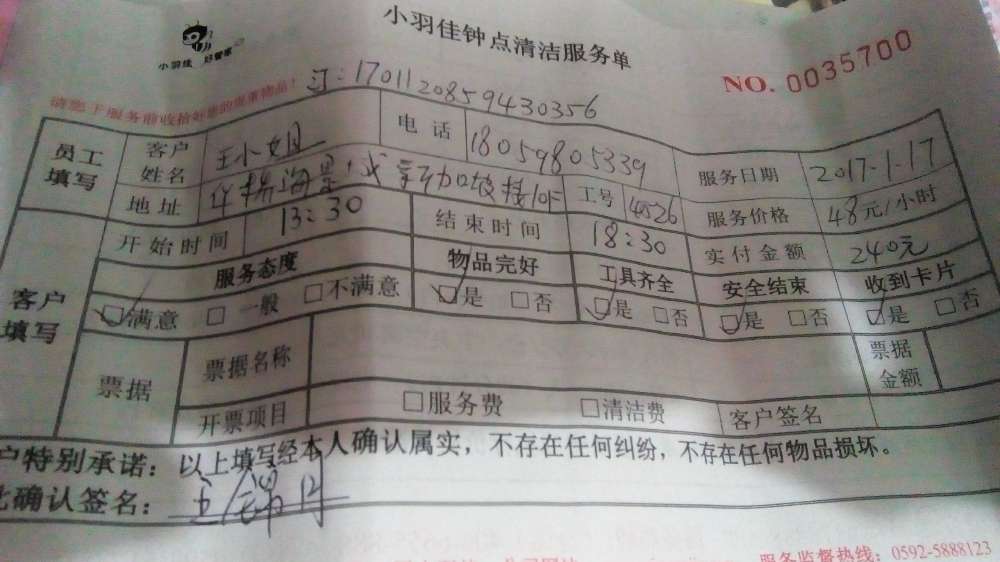 小羽佳 好管家
小羽佳钟点清洁服务单
NO. 0035700
请您于服务前收拾好您的贵重物品!
订:170112085943035​6
员工填写 客户姓名 王小姐 电话 18059805339 服务日期 2017-1-17
地址 工号 14526 服务价格 48元/小时
客户填写 开始时间 13:30 结束时间 18:30 实付金额 240元
服务态度 物品完好 工具齐全 安全结束 收到卡片
☑满意 □一般 □不满意 ☑是 □否 ☑是 □否 ☑是 □否 ☑是 □否
票据 票据名称 票据金额
开票项目 □服务费 □清洁费 客户签名
户特别承诺:以上填写经本人确认属实,不存在任何纠纷,不存在任何物品损坏。
此确认签名:
服务监督热线:0592-5888123